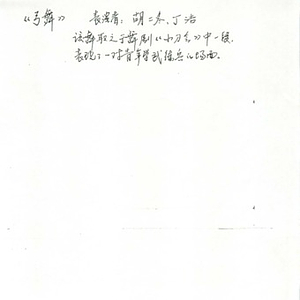 《弓舞》 表演者：胡二冬、丁洁
该舞取之于舞剧《小刀会》中一段，
表现了一对青年学武练兵的场面。